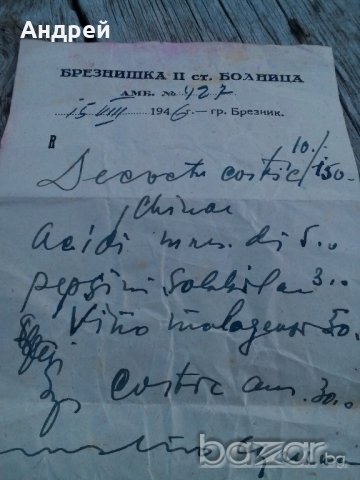 Андрей
БРЕЗНИШКА II ст. БОЛНИЦА
АМБ. № 427
15 VIII 1946 — гр. Брезник.
R
Decocti cortic 10./150-
Chinae
acidi mur. di 5..
pepsini 3..
Vino malagense 30.
Syr. cortic aur. 30..
bazar.bg